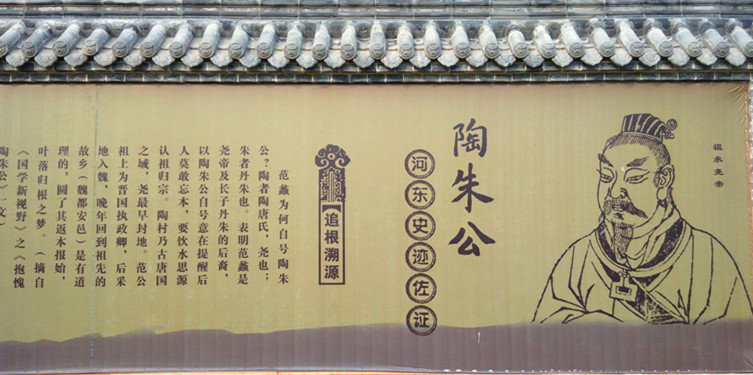 祖承尧帝
陶朱公
河东史迹佐证
【追根溯源
范蠡为何自号陶朱
公？陶者陶唐氏，尧也；
朱者丹朱也。表明范蠡是
尧帝及长子丹朱的后裔，
以陶朱公自号意在提醒后
人莫敢忘本，要饮水思源
认祖归宗。陶村乃古唐国
之城，尧最早封地。范公
祖上为晋国执政卿，后采
地入魏，晚年回到祖先的
故乡（魏都安邑）是有道
理的，圆了其返本报始，
叶落归根之梦。（摘自
《国学新视野》之《抱愧
陶朱公》一文）